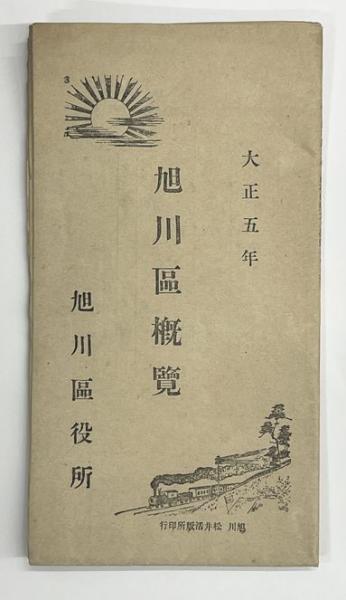 大正五年
旭川區概覽
旭川區役所
旭川 松井活版所印行